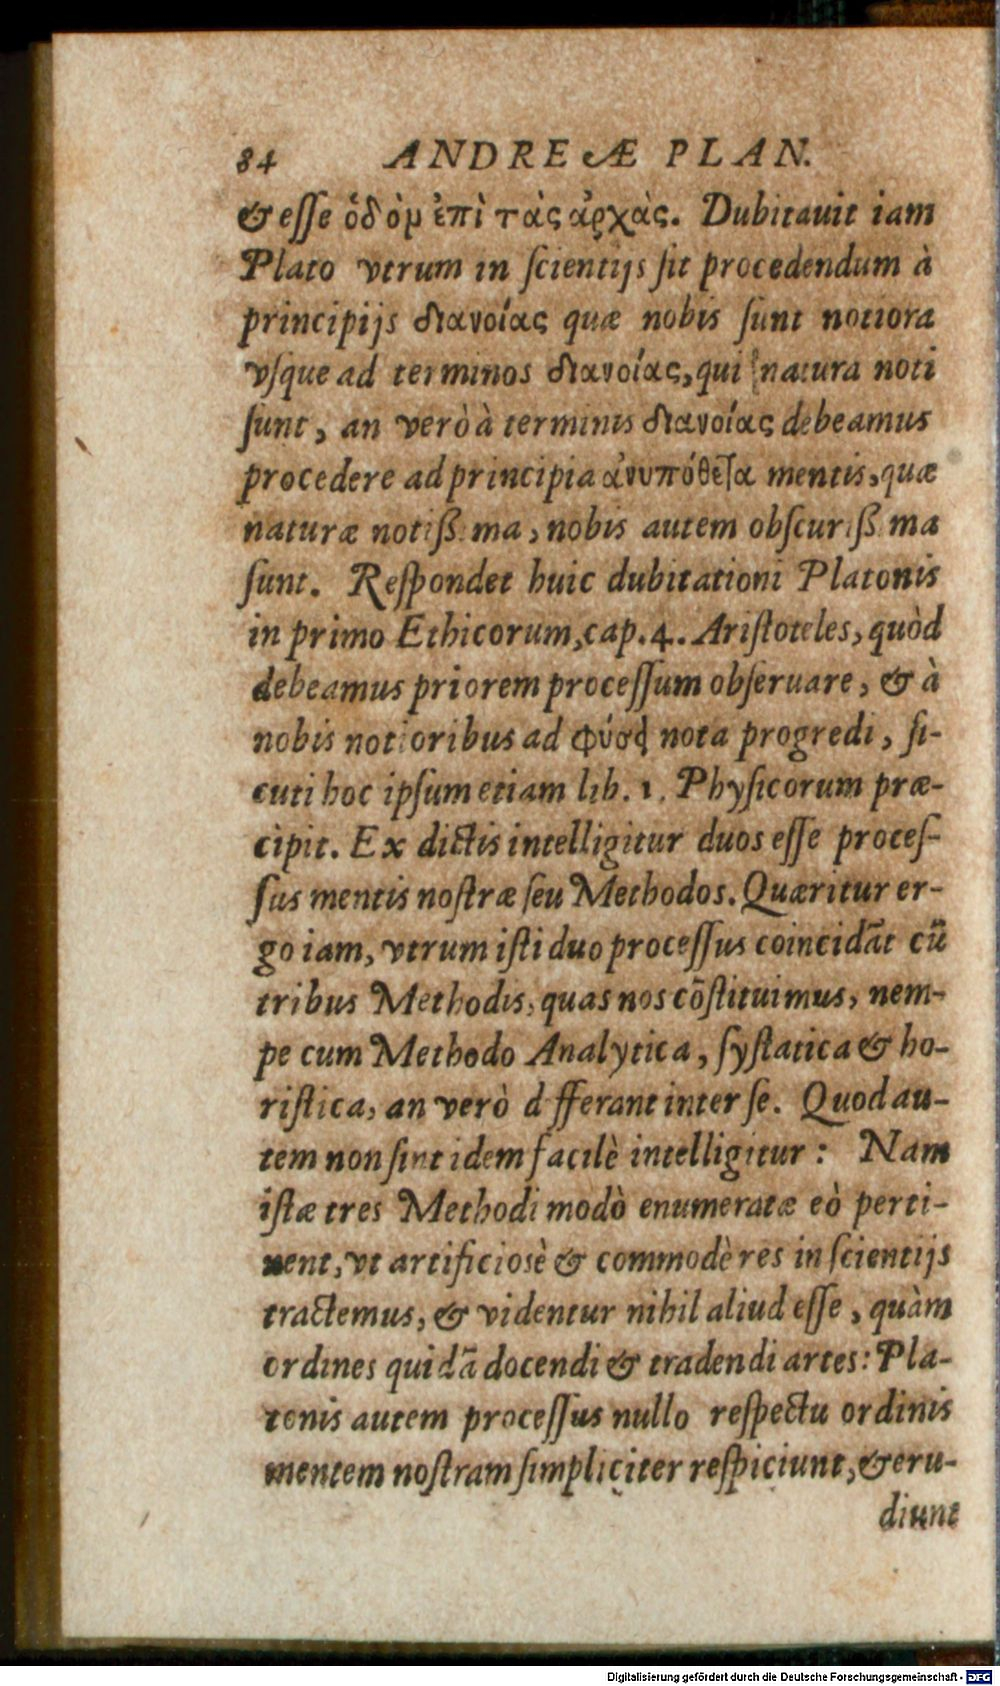 84 ANDREÆ PLAN.
& eſſe ὁδὸμ ἐπὶ τὰς ἀρχὰς. Dubitauit iam
Plato vtrum in ſcientijs ſit procedendum à
principijs διανοίας quæ nobis ſunt notiora
vſque ad terminos διανοίας, qui natura noti
ſunt, an verò à terminis διανοίας debeamus
procedere ad principia ἀνυπόθετα mentis, quæ
naturæ notiſſima, nobis autem obſcuriſſima
ſunt. Reſpondet huic dubitationi Platonis
in primo Ethicorum, cap. 4. Ariſtoteles, quòd
debeamus priorem proceſſum obſeruare, & à
nobis notioribus ad φύσει nota progredi, ſi-
cuti hoc ipſum etiam lib. 1. Phyſicorum præ-
cipit. Ex dictis intelligitur duos eſſe proceſ-
ſus mentis noſtræ ſeu Methodos. Quæritur er-
go iam, vtrum iſti duo proceſſus coincidāt cū
tribus Methodis, quas nos cōſtituimus, nem-
pe cum Methodo Analytica, ſyſtatica & ho-
riſtica, an verò differant inter ſe. Quod au-
tem non ſint idem facilè intelligitur: Nam
iſtæ tres Methodi modò enumeratæ eò perti-
nent, vt artificioſè & commodè res in ſcientijs
tractemus, & videntur nihil aliud eſſe, quàm
ordines quidā docendi & tradendi artes: Pla-
tonis autem proceſſus nullo reſpectu ordinis
mentem noſtram ſimpliciter reſpiciunt, & eru-
diunt
Digitalisierung gefördert durch die Deutsche Forschungsgemeinschaft - DFG